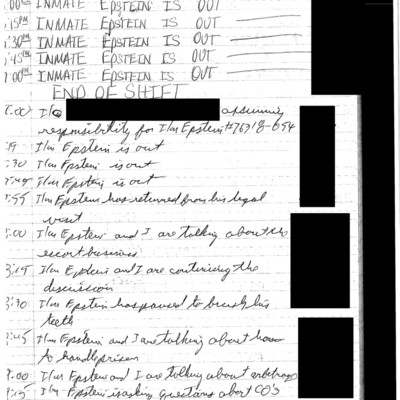 :00 INMATE EPSTEIN IS OUT
:15PM INMATE EPSTEIN IS OUT
:30PM INMATE EPSTEIN IS OUT
:45PM INMATE EPSTEIN IS OUT
:00AM INMATE EPSTEIN IS OUT
END OF SHIFT
:00 I/m assuming
responsibility for I/m Epstein #76318-054
I/m Epstein is out
:30 I/m Epstein is out
:45 I/m Epstein is out
:55 I/m Epstein has returned from his legal
visit
:00 I/m Epstein and I are talking about the
escort business
3:15 I/m Epstein and I are continuing the
discussion
3:30 I/m Epstein has paused to brush his
teeth
3:45 I/m Epstein and I are talking about how
to handle prison
:00 I/m Epstein and I are talking about arbitrage
:15 I/m Epstein is asking questions about CO's